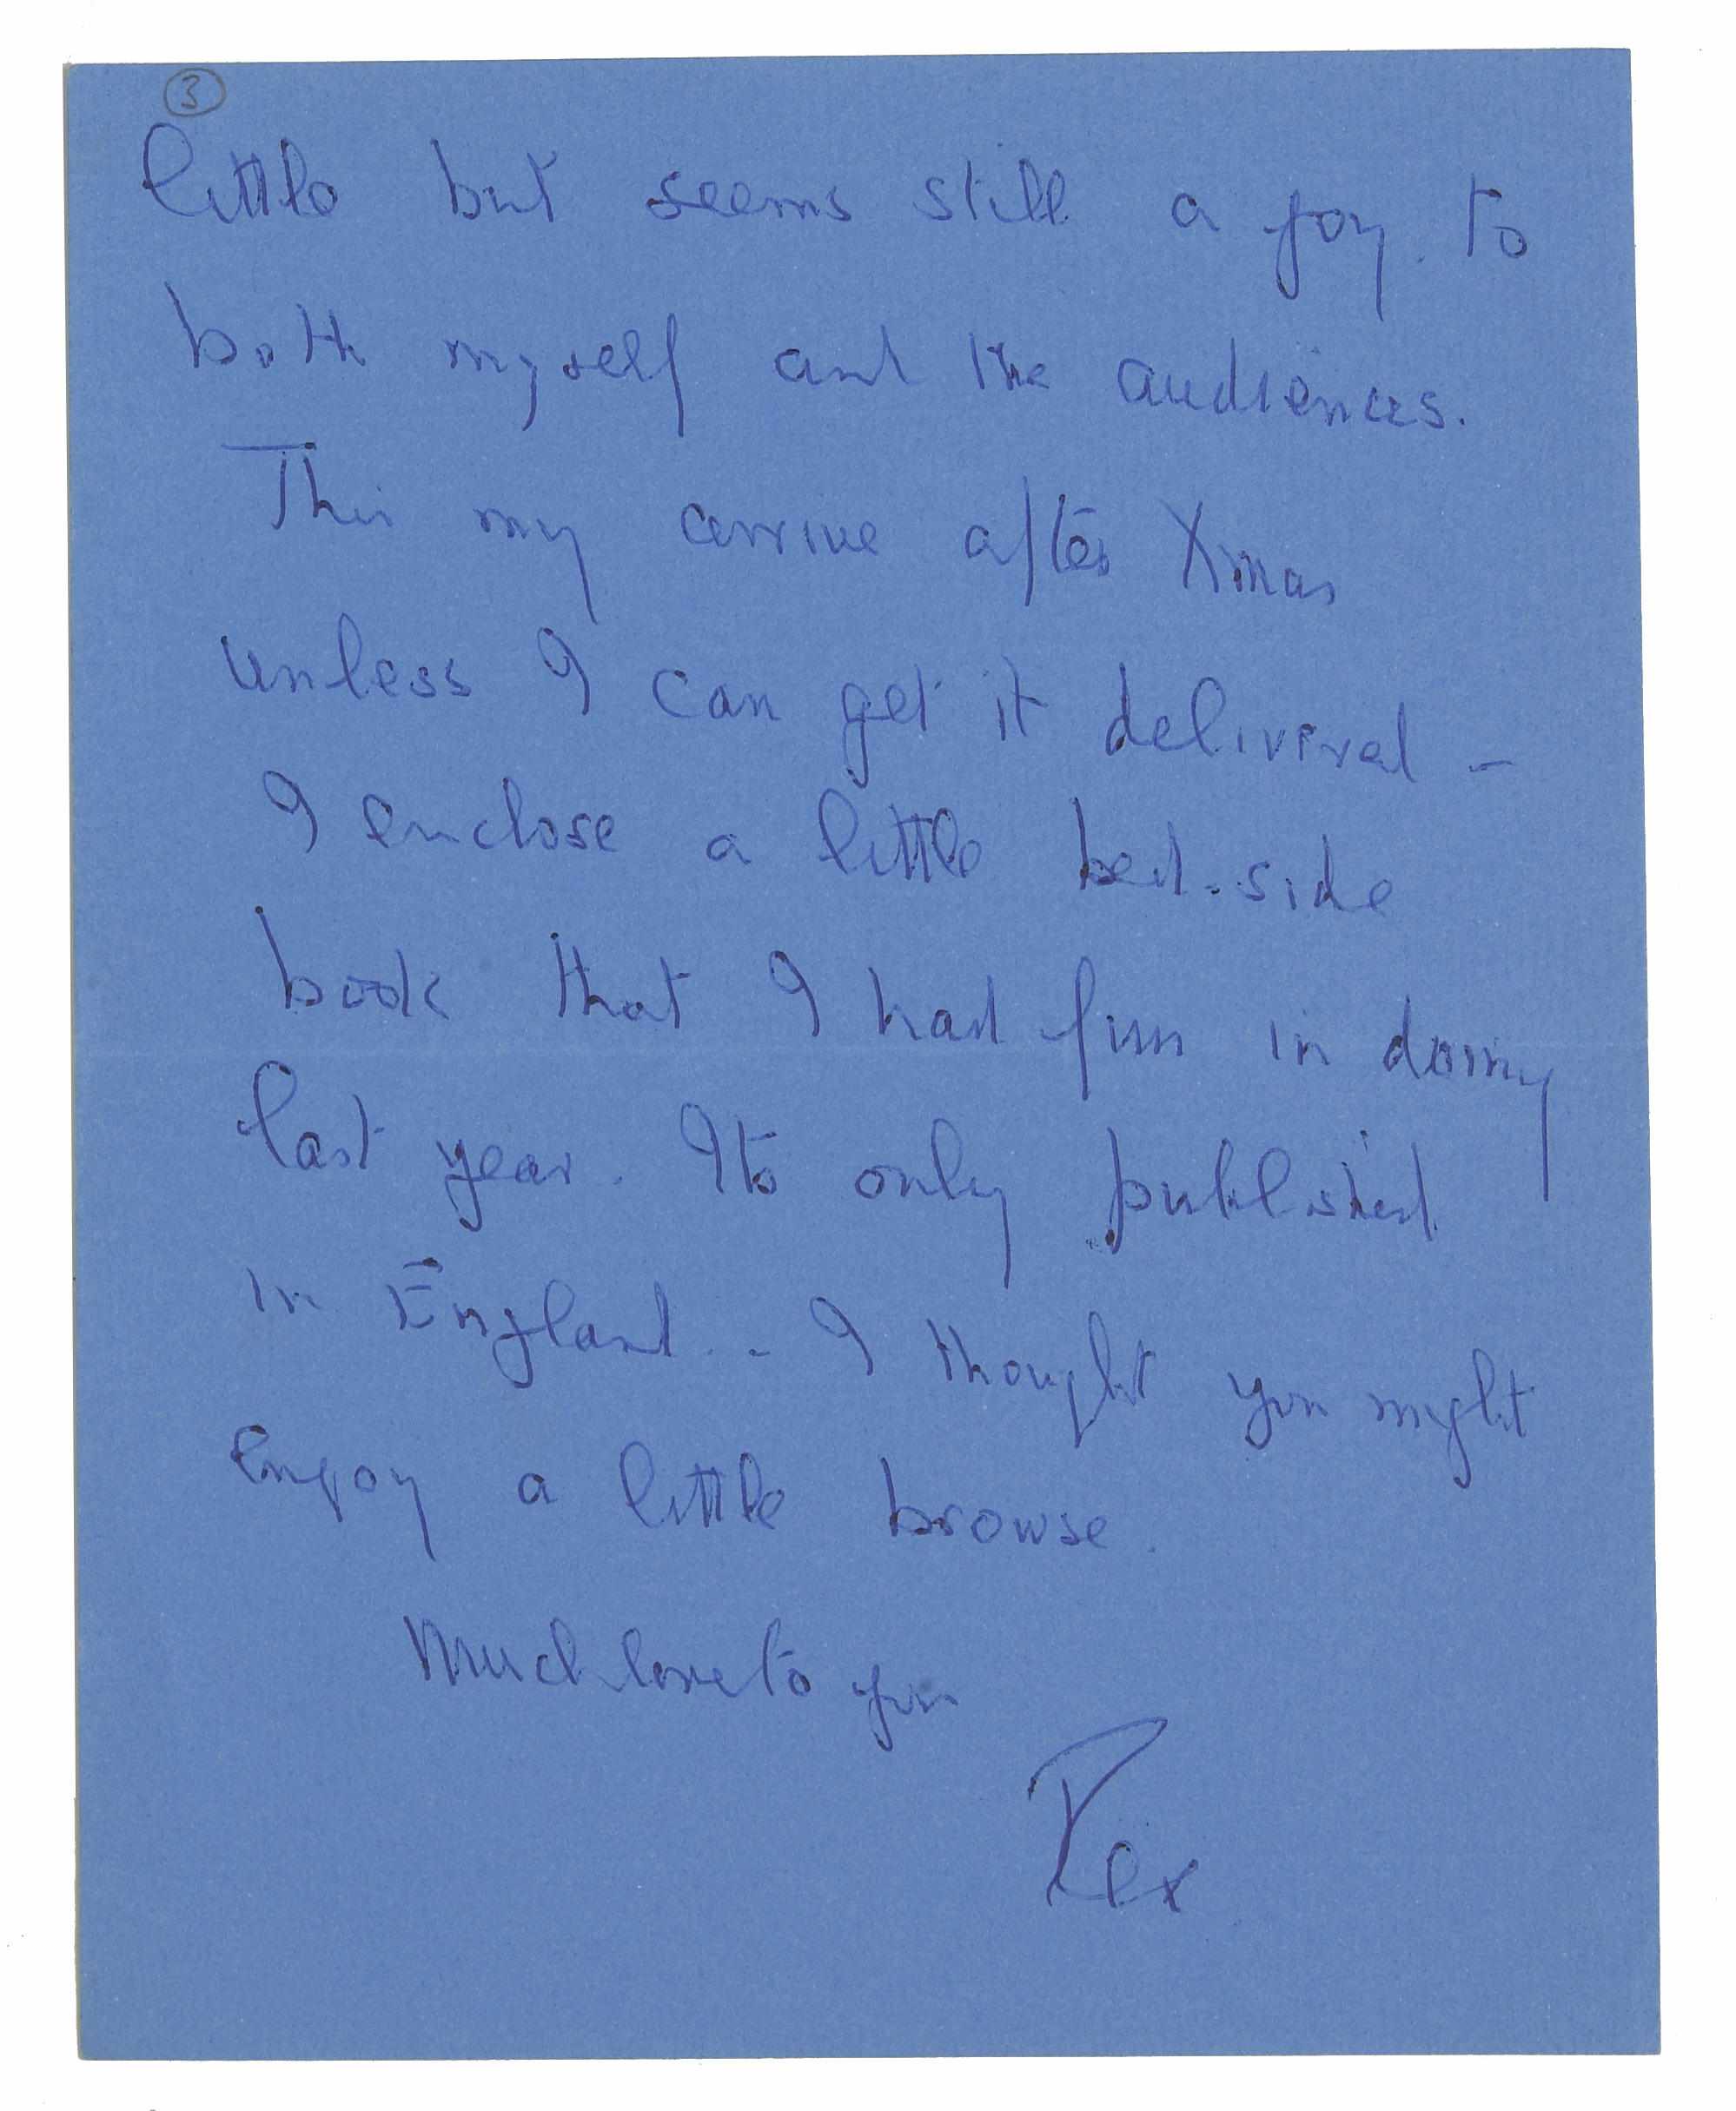 3
little but seems still a joy. to
both myself and the audiences.
This my arrive after Xmas
unless I can get it delivered -
I enclose a little bed-side
book that I had fun in doing
last year. Its only published
in England. - I thought you might
enjoy a little browse.
Much love to you
Rex